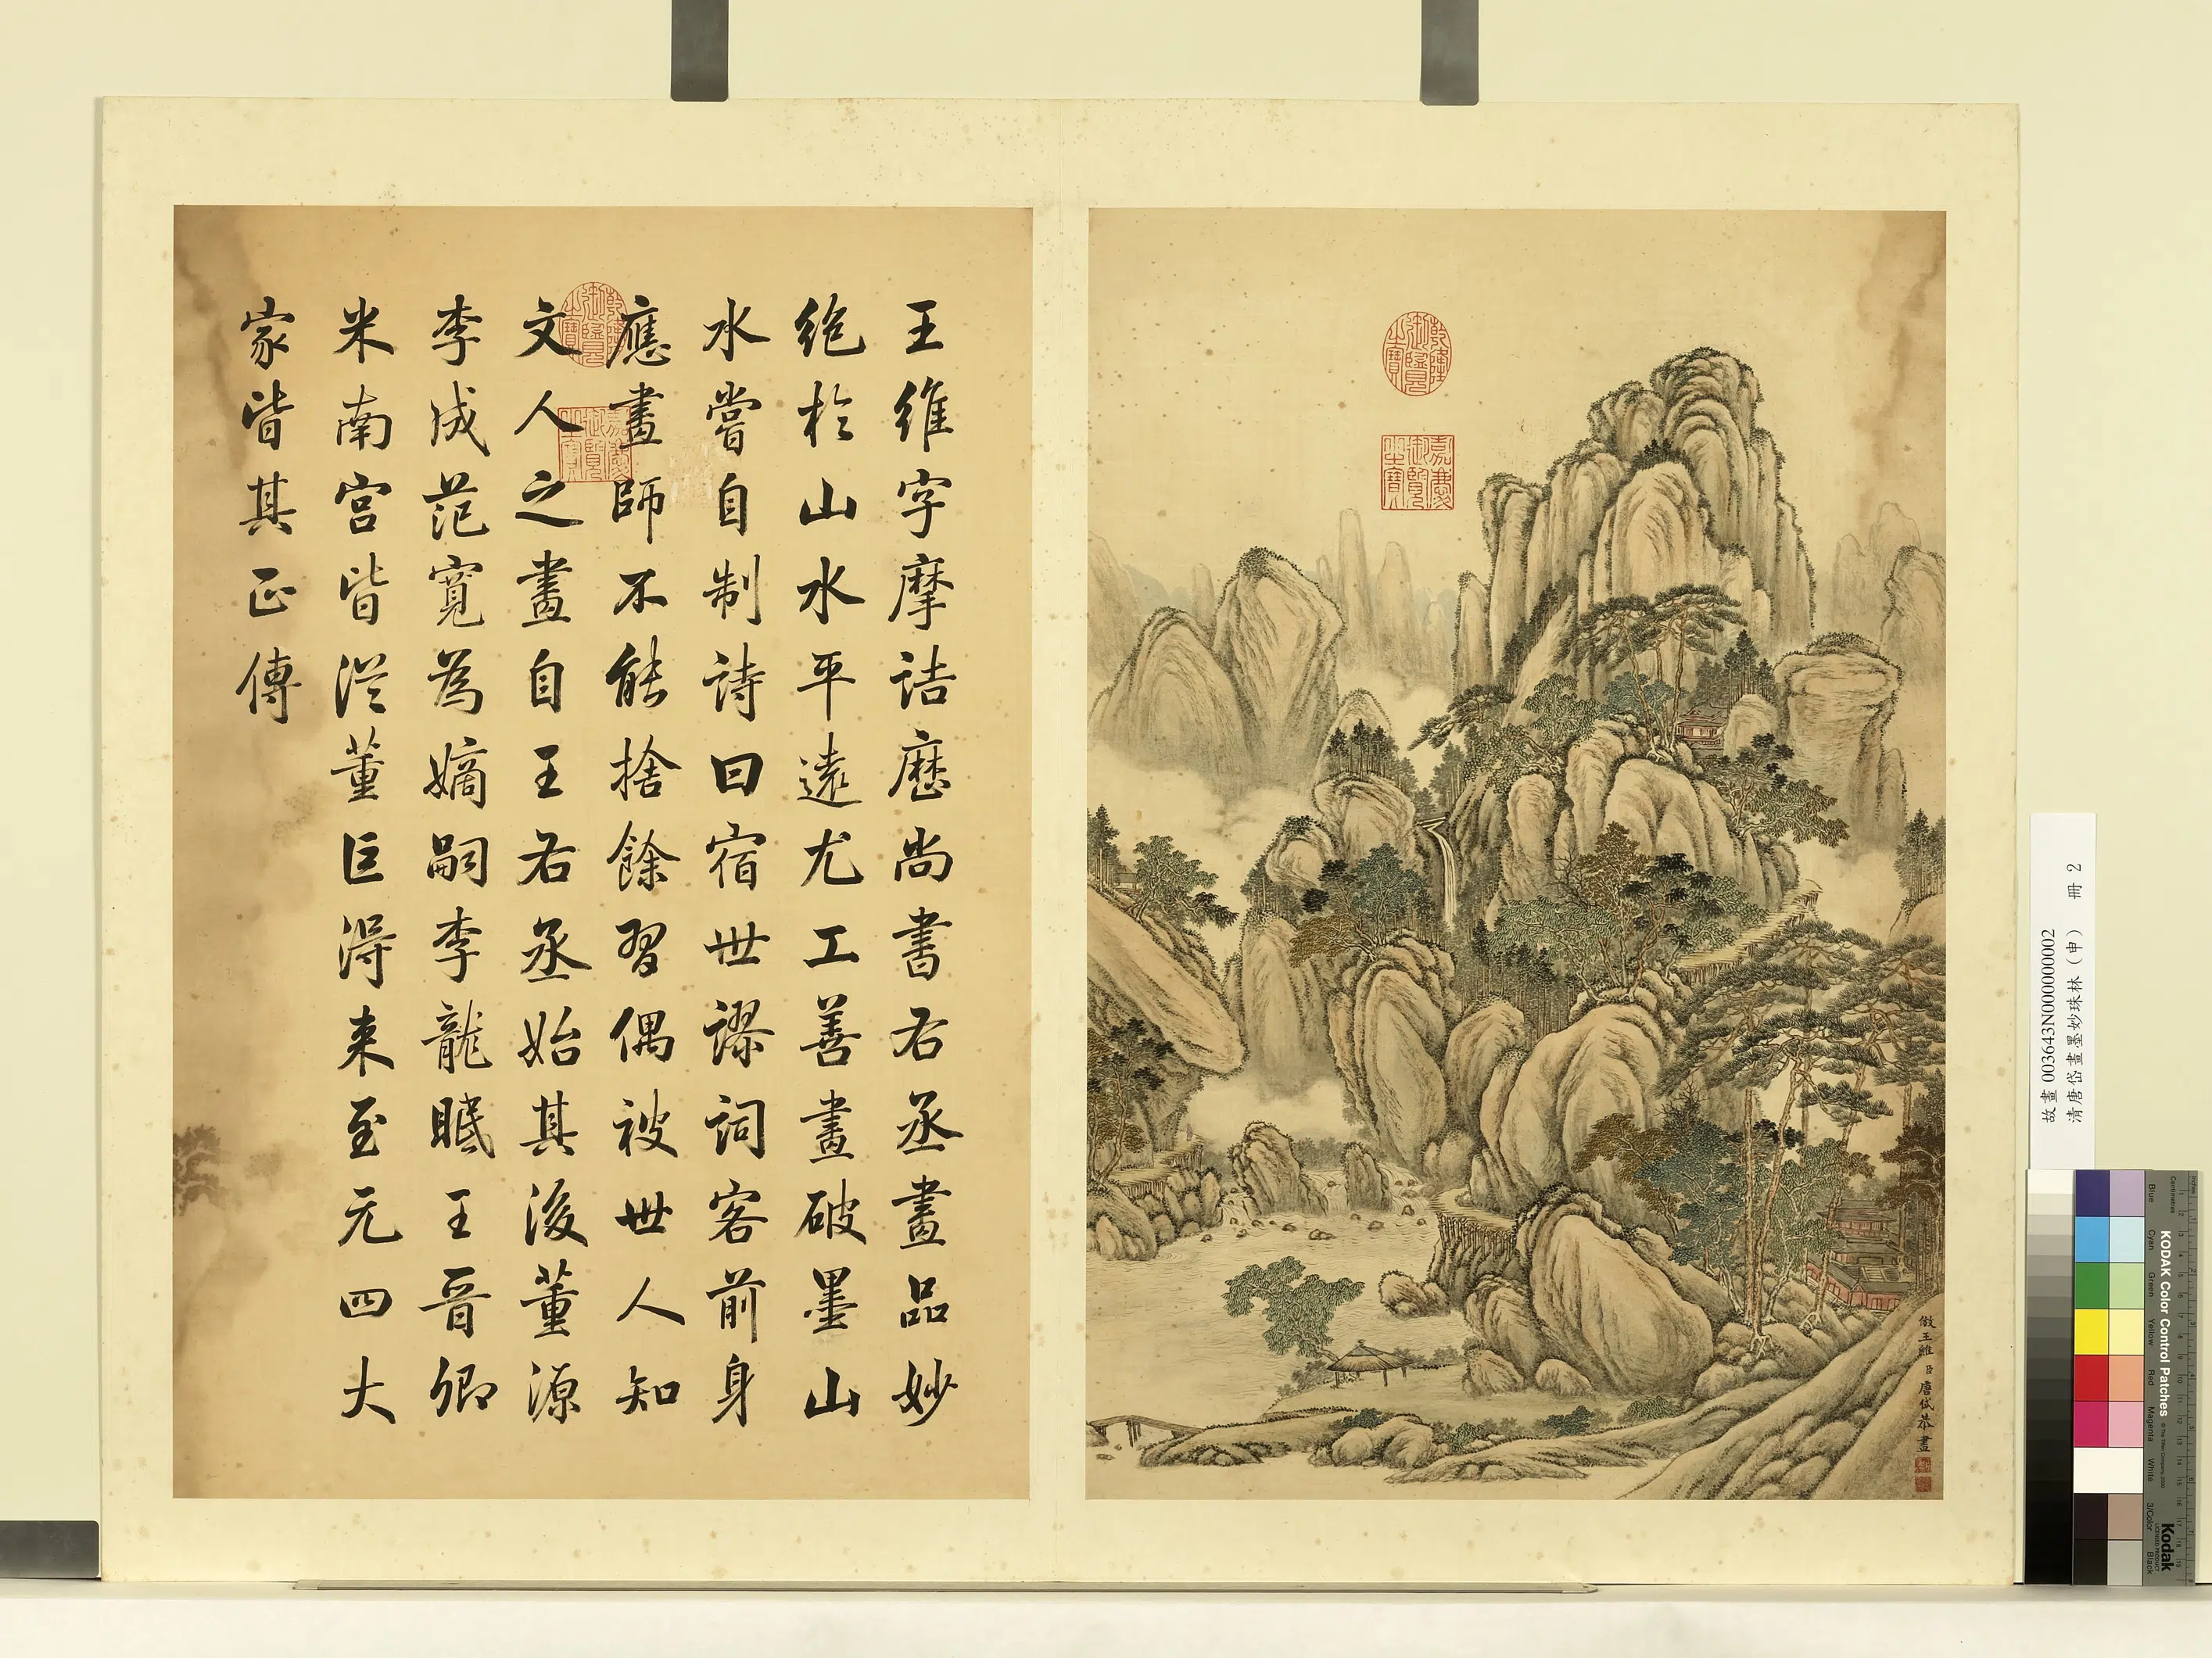 王維字摩詰歷尚書右丞畫品妙
絕於山水平遠尤工善畫破墨山
水嘗自制詩曰宿世謬詞客前身
應畫師不能捨餘習偶被世人知
文人之畫自王右丞始其後董源
李成范寬為嫡嗣李龍眠王晉卿
米南宮皆從董巨得來至元四大
家皆其正傳
乾隆御覽之寶
嘉慶御覽之寶
乾隆御覽之寶
嘉慶御覽之寶
倣王維 臣唐岱恭畫
故畫 003643N000000002
清唐岱畫墨妙珠林（申） 冊 2
KODAK Color Control Patches
Blue Cyan Green Yellow Red Magenta White 3/Color Black
Inches
Centimetres
Kodak
LICENSED PRODUCT